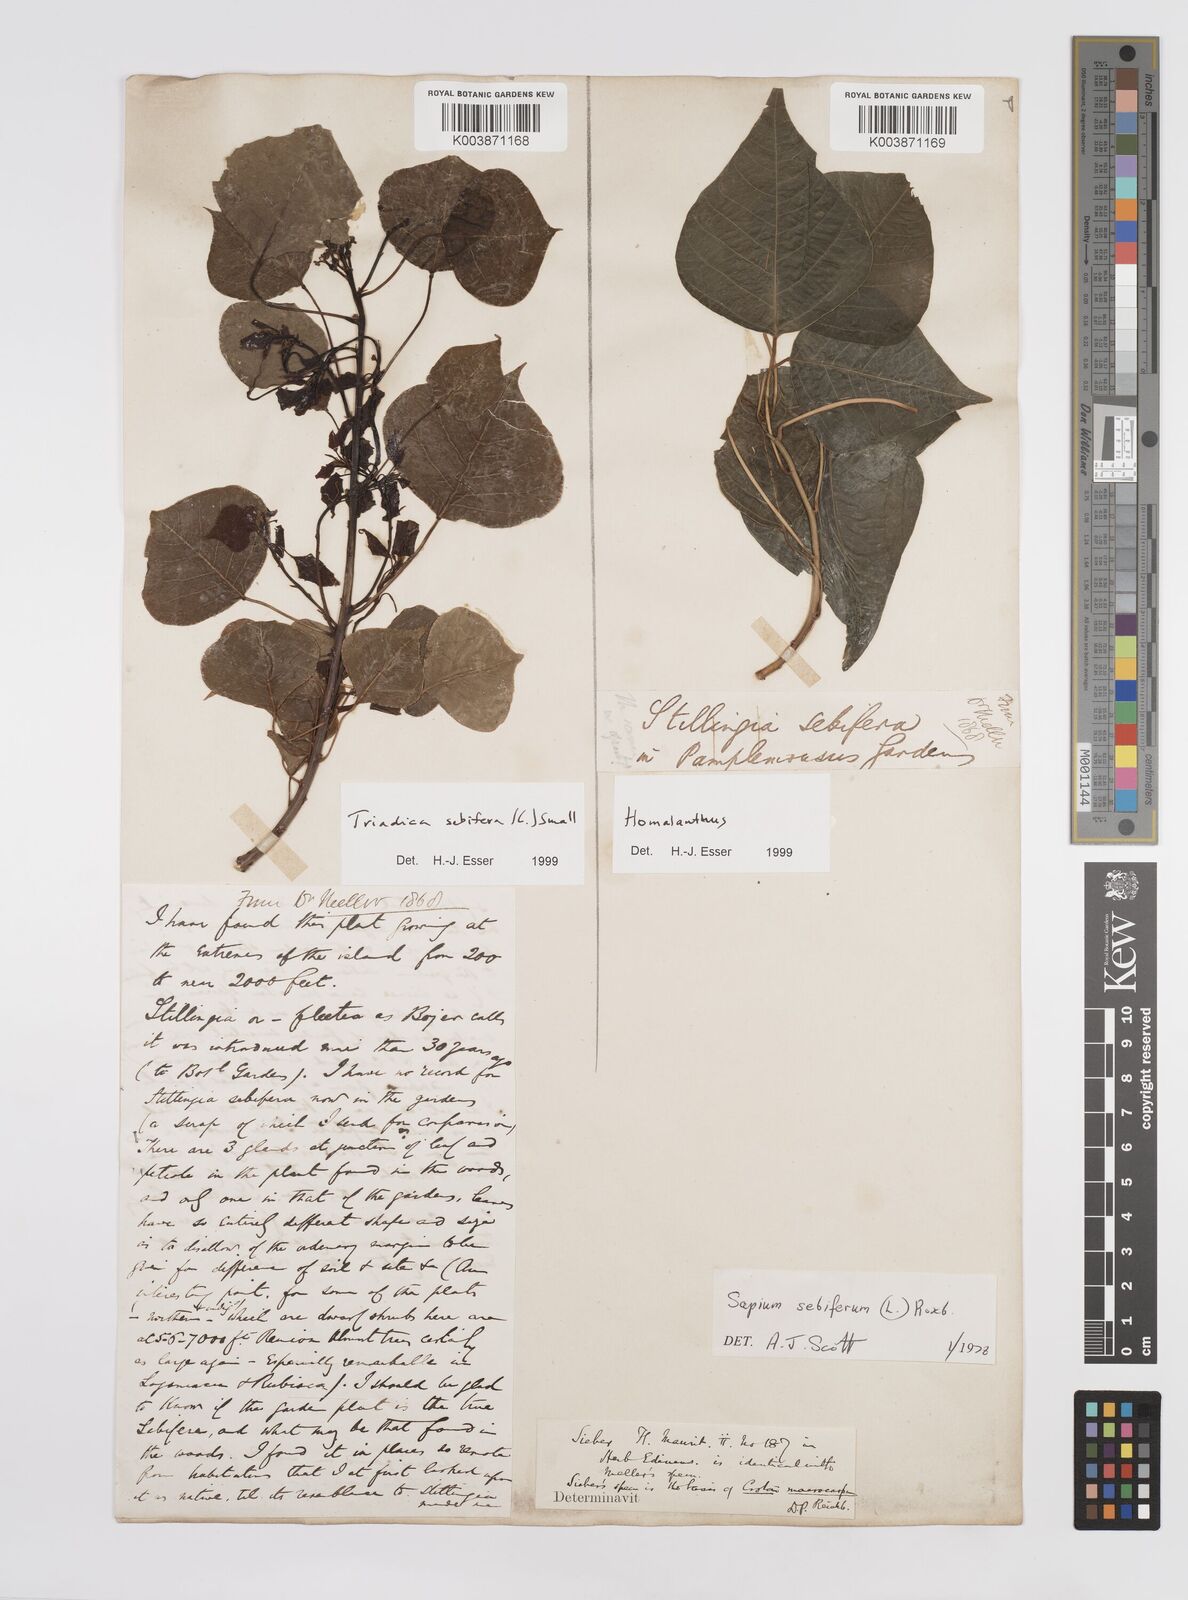 ROYAL BOTANIC GARDENS KEW
K003871168
ROYAL BOTANIC GARDENS KEW
K003871169
Stillingia sebifera
in Pamplemousses Gardens
From
Dr Meller
1868
M001144
Triadica sebifera (L.) Small
Det. H.-J. Esser 1999
Homalanthus
Det. H.-J. Esser 1999
From Dr Meller 1868
I have found this plant growing at
the extremes of the island from 200
to near 2000 feet.
Stillingia or - as Bojer calls
it was introduced more than 30 years ago
(to Bot l Gardens). I have no record for
Stillingia sebifera now in the gardens
(a scrap of which I send for comparison)
There are 3 glands at junction of leaf and
petiole in the plant found in the woods,
and only one in that of the gardens. leaves
have so entirely different shape and size
as to disallow of the ordinary margin to be
given for difference of soil & site & (An
interesting point, for some of the plants
- northern - which are dwarf shrubs here are
at 5-6-7000 ft Reunion almost trees certainly
as large again - Especially remarkable in
& Rubiacea). I should be glad
to know if the garden plant is the true
Sebifera, and what may be that found in
the woods. I found it in places so remote
from habitations that I at first looked upon
it as native, til its resemblance to Stillingia
made me
Sapium sebiferum (L.) Roxb.
DET. A. J. Scott 1/1978
Sieber Fl. Maurit. ii. No 187 in
Herb Edinens. is identical with
Meller's spem.
Sieber's spem is the basis of Croton macrocarpa
Determinavit
D.P. Reichb.
Don Williams
Kew
Royal Botanic Gardens
0 1 2 3 4 5 6 7 8 9 10 cm
copyright reserved